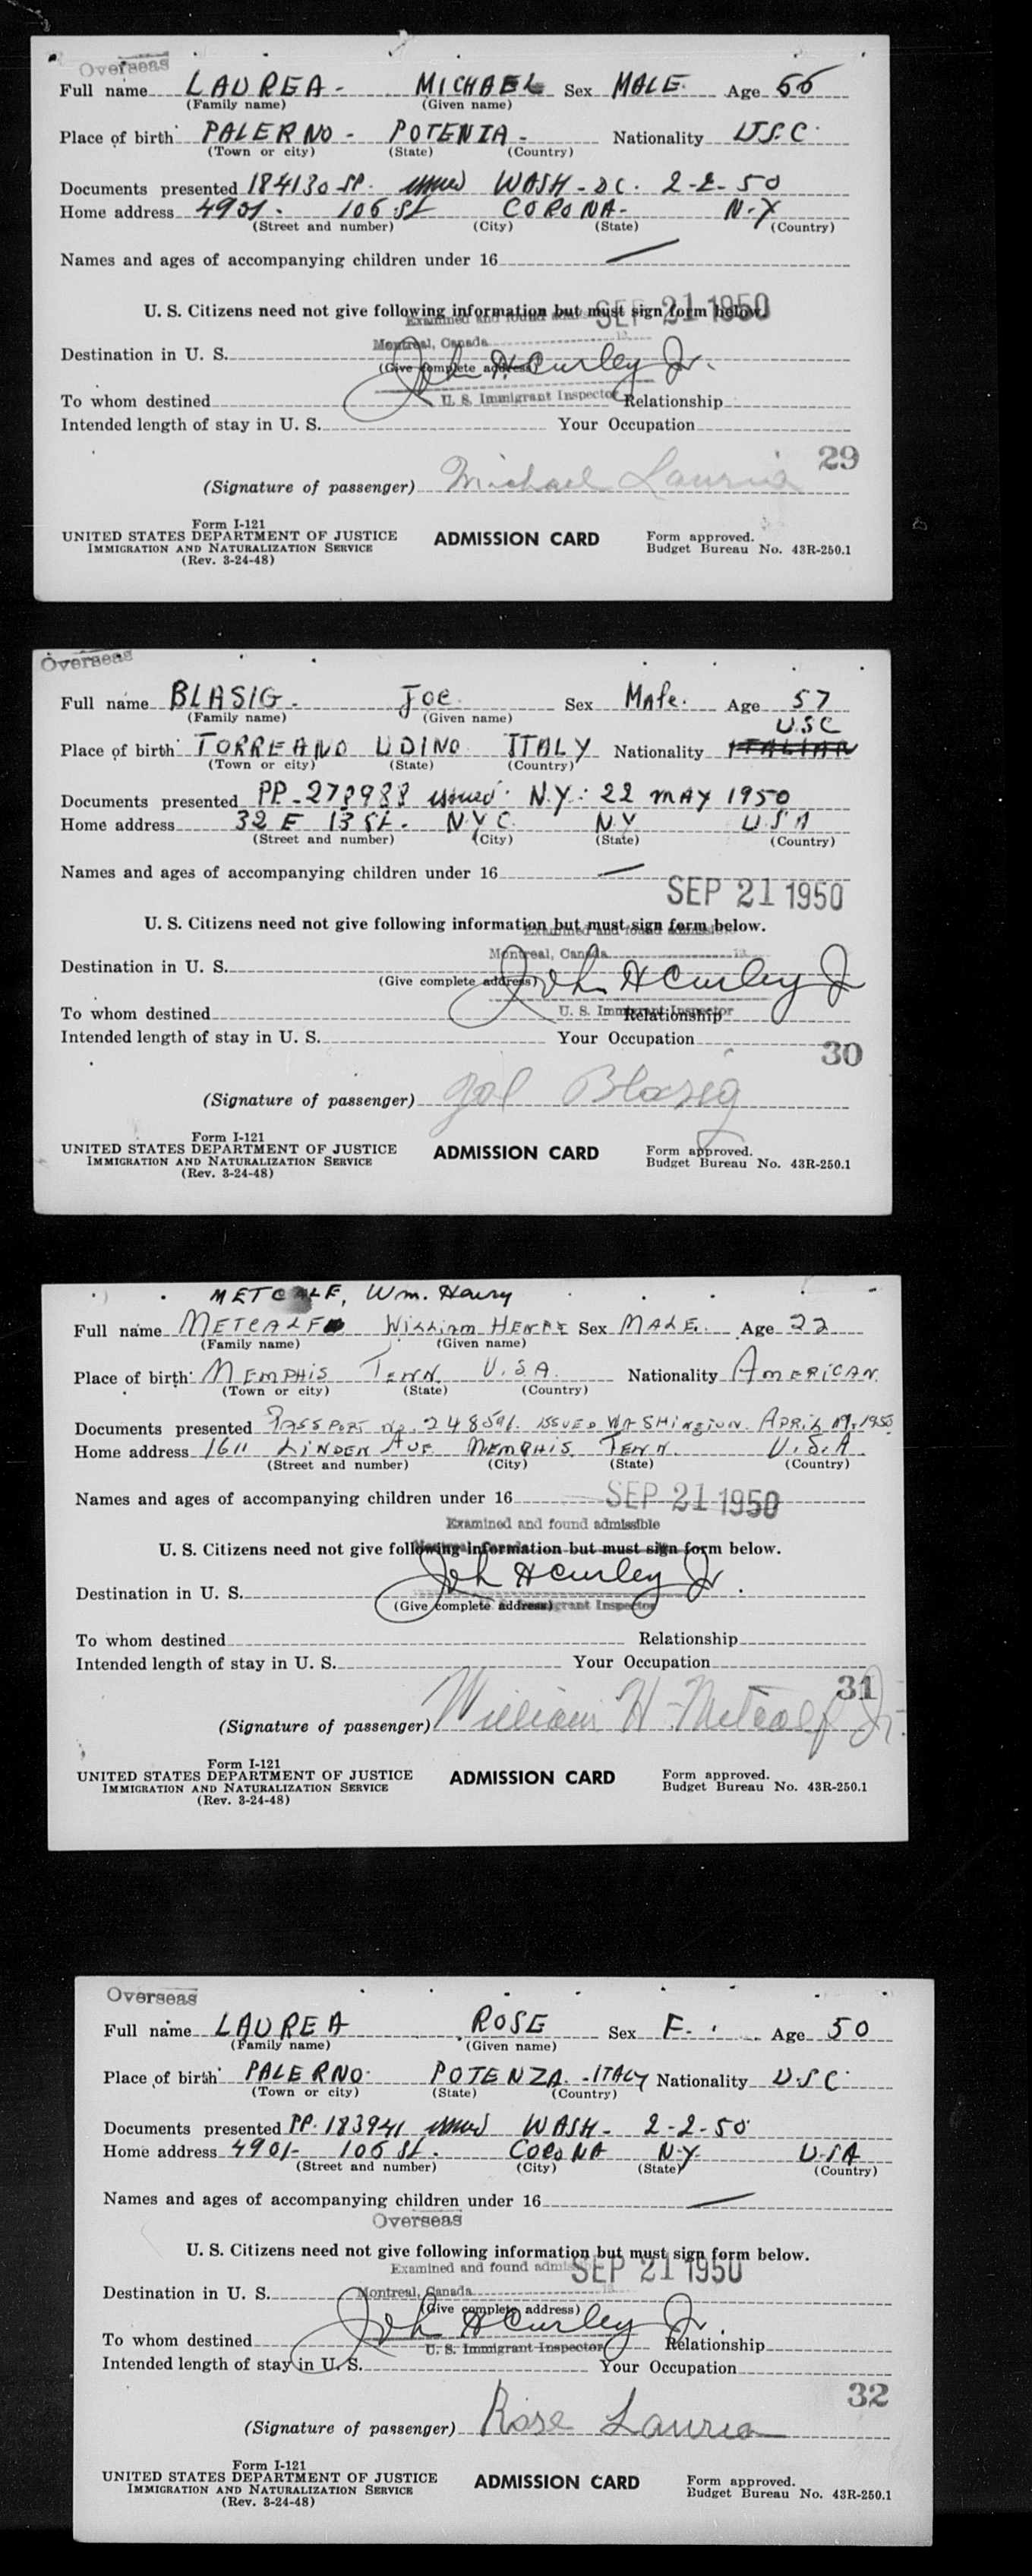 Overseas
Full name LAUREA - MICHAEL Sex MALE. Age 56
(Family name) (Given name)
Place of birth PALERNO - POTENIA - Nationality U.S.C.
(Town or city) (State) (Country)
Documents presented 184130 SP. issued WASH - DC. 2-2-50
Home address 4901. 106 St CORONA - N-Y
(Street and number) (City) (State) (Country)
Names and ages of accompanying children under 16 —
SEP 21 1950
U. S. Citizens need not give following information but must sign form below.
Examined and found
Montreal, Canada
Destination in U. S.
(Give complete address)
John H Curley Jr.
U. S. Immigrant Inspector
To whom destined Relationship
Intended length of stay in U. S. Your Occupation
29
(Signature of passenger) Michael Lauria
Form I-121
UNITED STATES DEPARTMENT OF JUSTICE ADMISSION CARD Form approved.
IMMIGRATION AND NATURALIZATION SERVICE Budget Bureau No. 43R-250.1
(Rev. 3-24-48)
Overseas
Full name BLASIG. Joe. Sex Male. Age 57
(Family name) (Given name)
USC
Place of birth TORREANO UDINO ITALY Nationality ITALIAN
(Town or city) (State) (Country)
Documents presented PP-278988 issued: N.Y: 22 MAY 1950
Home address 32 E 13 St. NYC NY USA
(Street and number) (City) (State) (Country)
Names and ages of accompanying children under 16 —
SEP 21 1950
U. S. Citizens need not give following information but must sign form below.
Examined and found admissible
Montreal, Canada
Destination in U. S.
(Give complete address)
John H Curley Jr
U. S. Immigrant Inspector
To whom destined Relationship
Intended length of stay in U. S. Your Occupation
30
(Signature of passenger) Joe Blasig
Form I-121
UNITED STATES DEPARTMENT OF JUSTICE ADMISSION CARD Form approved.
IMMIGRATION AND NATURALIZATION SERVICE Budget Bureau No. 43R-250.1
(Rev. 3-24-48)
METCALF, Wm. Henry
Full name METCALF WILLIAM HENRY Sex MALE. Age 22
(Family name) (Given name)
Place of birth MEMPHIS TENN. U.S.A. Nationality AMERICAN
(Town or city) (State) (Country)
Documents presented PASSPORT No. 248591. ISSUED WASHINGTON. APRIL 19, 1950
Home address 1611 LINDEN AVE MEMPHIS, TENN. U.S.A.
(Street and number) (City) (State) (Country)
Names and ages of accompanying children under 16
SEP 21 1950
Examined and found admissible
U. S. Citizens need not give following information but must sign form below.
John H Curley Jr.
Destination in U. S.
(Give complete address) Immigrant Inspector
To whom destined Relationship
Intended length of stay in U. S. Your Occupation
31
(Signature of passenger) William H. Metcalf Jr.
Form I-121
UNITED STATES DEPARTMENT OF JUSTICE ADMISSION CARD Form approved.
IMMIGRATION AND NATURALIZATION SERVICE Budget Bureau No. 43R-250.1
(Rev. 3-24-48)
Overseas
Full name LAUREA ROSE Sex F. Age 50
(Family name) (Given name)
Place of birth PALERNO POTENZA - ITALY Nationality U.S.C.
(Town or city) (State) (Country)
Documents presented PP. 183941 issued WASH - 2-2-50
Home address 4901 - 106 St. CORONA N-Y USA
(Street and number) (City) (State) (Country)
Names and ages of accompanying children under 16 —
Overseas
U. S. Citizens need not give following information but must sign form below.
Examined and found SEP 21 1950
Destination in U. S. Montreal, Canada
(Give complete address)
John H Curley Jr.
To whom destined U. S. Immigrant Inspector Relationship
Intended length of stay in U. S. Your Occupation
32
(Signature of passenger) Rose Lauria
Form I-121
UNITED STATES DEPARTMENT OF JUSTICE ADMISSION CARD Form approved.
IMMIGRATION AND NATURALIZATION SERVICE Budget Bureau No. 43R-250.1
(Rev. 3-24-48)